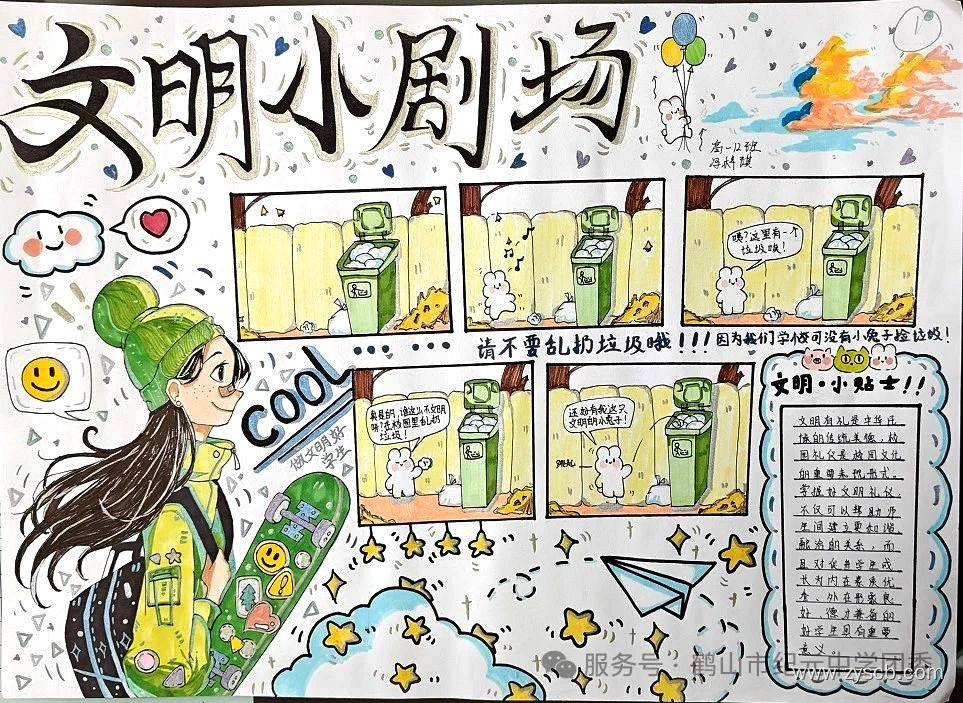 文明小剧场
1
高一12班
嗯?这里有一个
垃圾哦!
请不要乱扔垃圾哦!!!因为我们学校可没有小兔子捡垃圾!
COOL
做文明好
学生
真是的,谁这么不文明
呀?在校园里乱扔
垃圾!
还好有我这只
文明的小兔子!
文明·小贴士!!
文明有礼是中华民
族的传统美德,校
园礼仪是校园文化
的重要表现形式。
掌握好文明礼仪,
不仅可以帮助师
生间建立更和谐、
融洽的关系,而
且对促进学生成
长为内在素质优
秀、外在形象良
好、德才兼备的
好学生具有重要
意义。
服务号:鹤山市纪元中学团委
www.zyscb.com